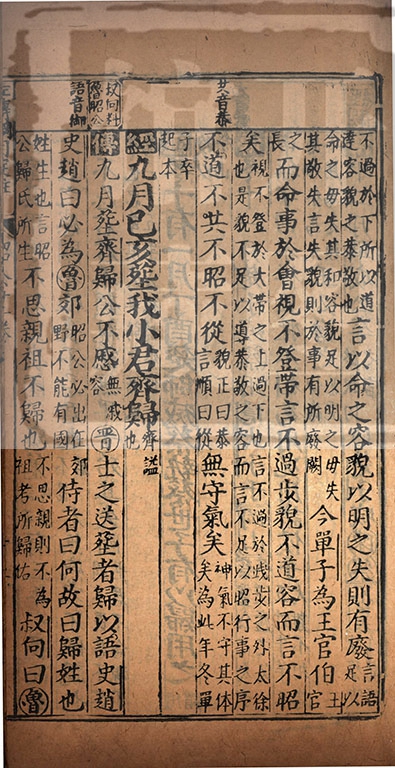 不過於下所以道
違容貌之恭敬也
言以命之容貌以明之失則有廢
言語
足以
命之毋失其和容貌足以明之毋失
其敬失言失貌則於事有所廢闕
今單子為王官伯
王
官
長之
而命事於會視不登帶言不過步貌不道容而言不昭
矣
視不登於大帶之上過下也言不過於跬步之外太徐
也是貌不足以導恭敬之容而言不足以昭行事之序
共音恭
不道不共不昭不從
貌正曰恭
言順曰從
無守氣矣
神氣不守其体
矣為此年冬單
子卒
起本
經九月己亥葬我小君齊歸
齊謚
也
叔向
魯昭公
傳九月葬齊歸公不慼
無戚
容
晉士之送葬者歸以語史趙
語音御
史趙曰必為魯郊
昭公必出在郊
野不能有國
侍者曰何故曰歸姓也
姓生也言昭
公歸氏所生
不思親祖不歸也
不思親則不為
祖考所歸佑
叔向曰魯